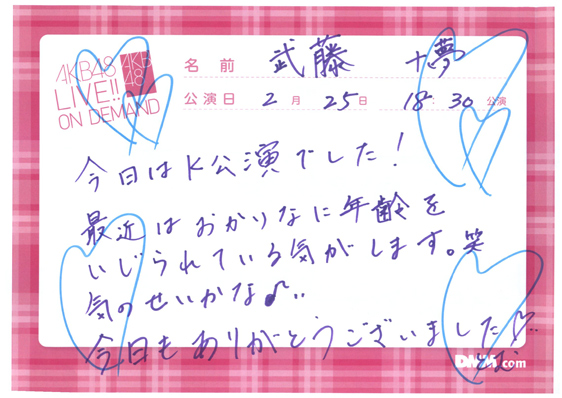 AKB48
LIVE!!
ON DEMAND
AKB
48
名前 武藤 十夢
公演日 2月 25日 18:30 公演
今日はK公演でした!
最近はおかりなに年齢を
いじられている気がします。笑
気のせいかな♪..
今日もありがとうございました♪..
とむ
DMM.com